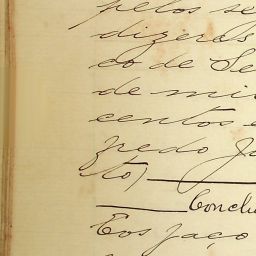 pelos se
dizeres
co de Se
de mil
centos e
fredo Ja
to)
Conclu
Eos faço